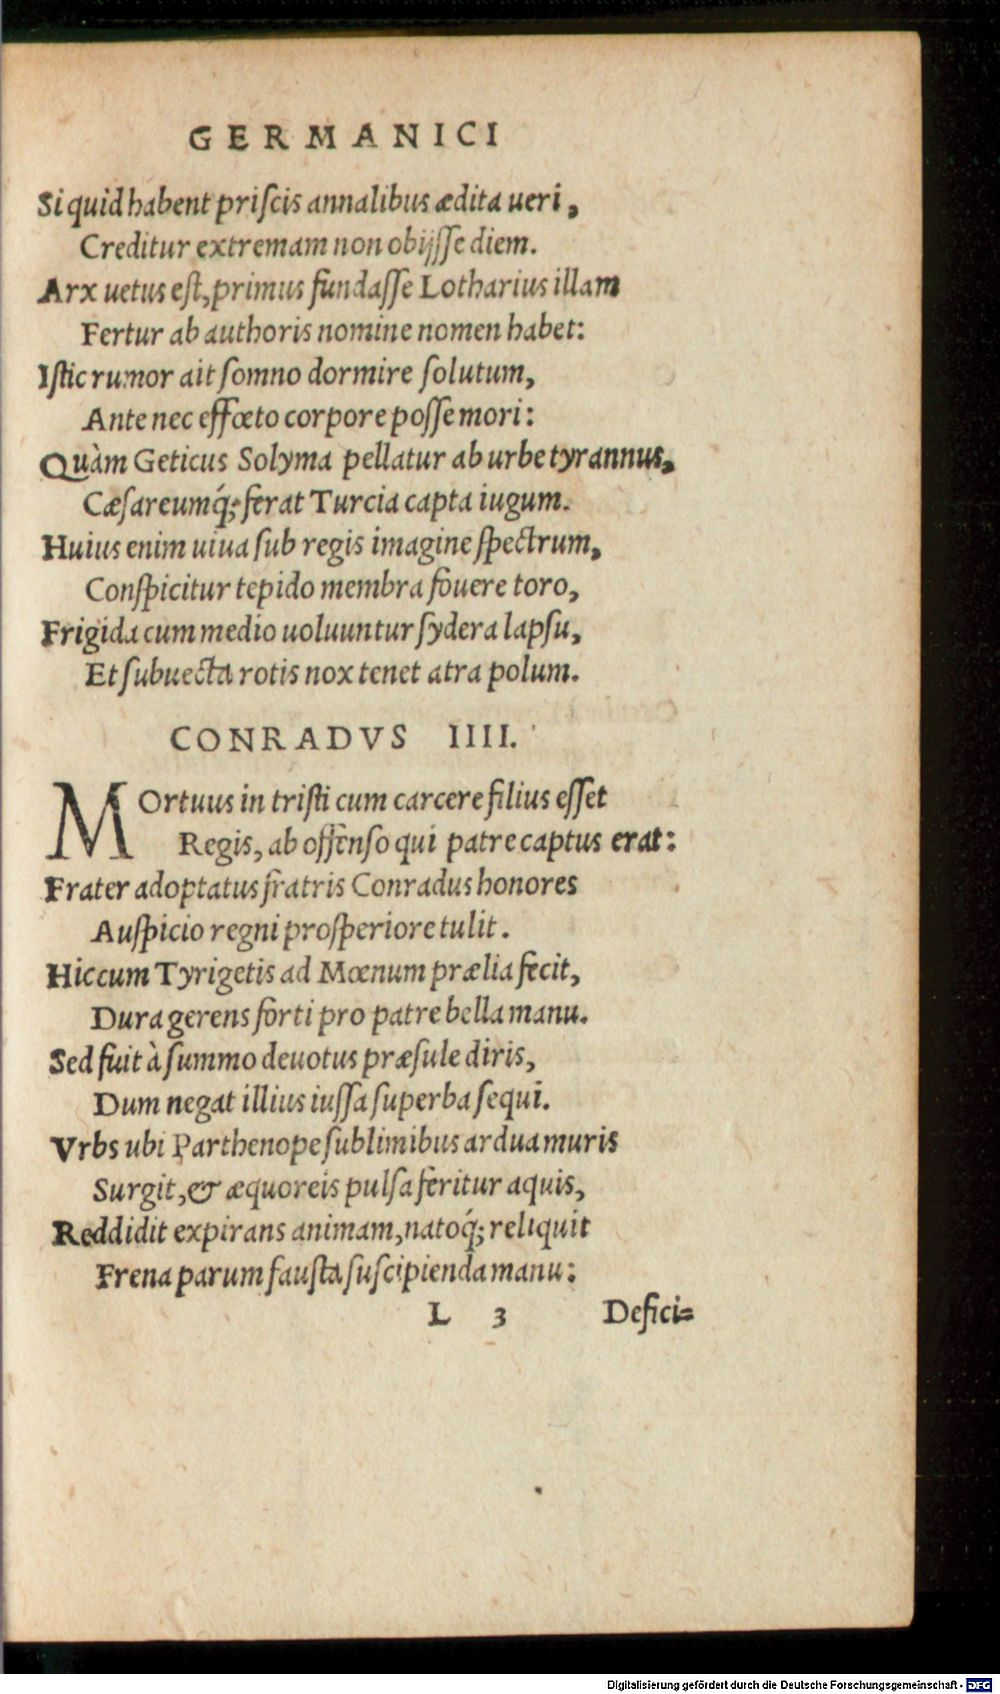 GERMANICI
Si quid habent priſcis annalibus ædita ueri,
Creditur extremam non obijſſe diem.
Arx uetus eſt, primus fundaſſe Lotharius illam
Fertur ab authoris nomine nomen habet:
Iſtic rumor ait ſomno dormire ſolutum,
Ante nec effœto corpore poſſe mori:
Quàm Geticus Solyma pellatur ab urbe tyrannus,
Cæſareumq́; ferat Turcia capta iugum.
Huius enim uiua ſub regis imagine ſpectrum,
Conſpicitur tepido membra fouere toro,
Frigida cum medio uoluuntur ſydera lapſu,
Et ſubuecta rotis nox tenet atra polum.
CONRADVS IIII.
MOrtuus in triſti cum carcere filius eſſet
Regis, ab offenſo qui patre captus erat:
Frater adoptatus fratris Conradus honores
Auſpicio regni proſperiore tulit.
Hic cum Tyrigetis ad Mœnum prælia fecit,
Dura gerens forti pro patre bella manu.
Sed fuit à ſummo deuotus præſule diris,
Dum negat illius iuſſa ſuperba ſequi.
Vrbs ubi Parthenope ſublimibus ardua muris
Surgit, & æquoreis pulſa feritur aquis,
Reddidit expirans animam, natoq́; reliquit
Frena parum fauſta ſuſcipienda manu:
L 3 Defici=
Digitalisierung gefördert durch die Deutsche Forschungsgemeinschaft - DFG